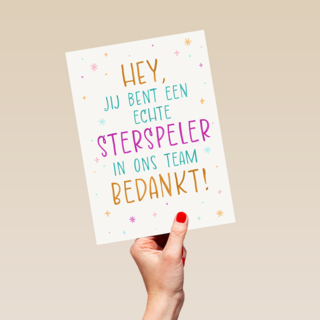 HEY,
JIJ BENT EEN
ECHTE
STERSPELER
IN ONS TEAM
BEDANKT!